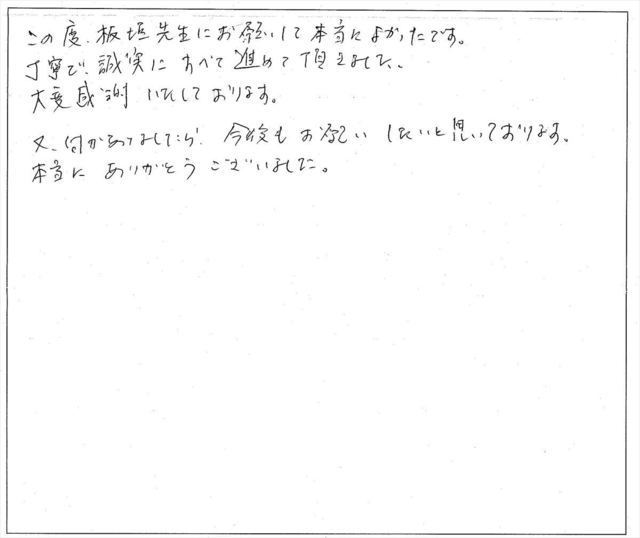 この度、板垣先生にお願いして本当によかったです。
丁寧で、誠実にすべて進めて頂きました。
大変感謝いたしております。
又、何かありましたら、今後もお願いしたいと思いております。
本当にありがとうございました。